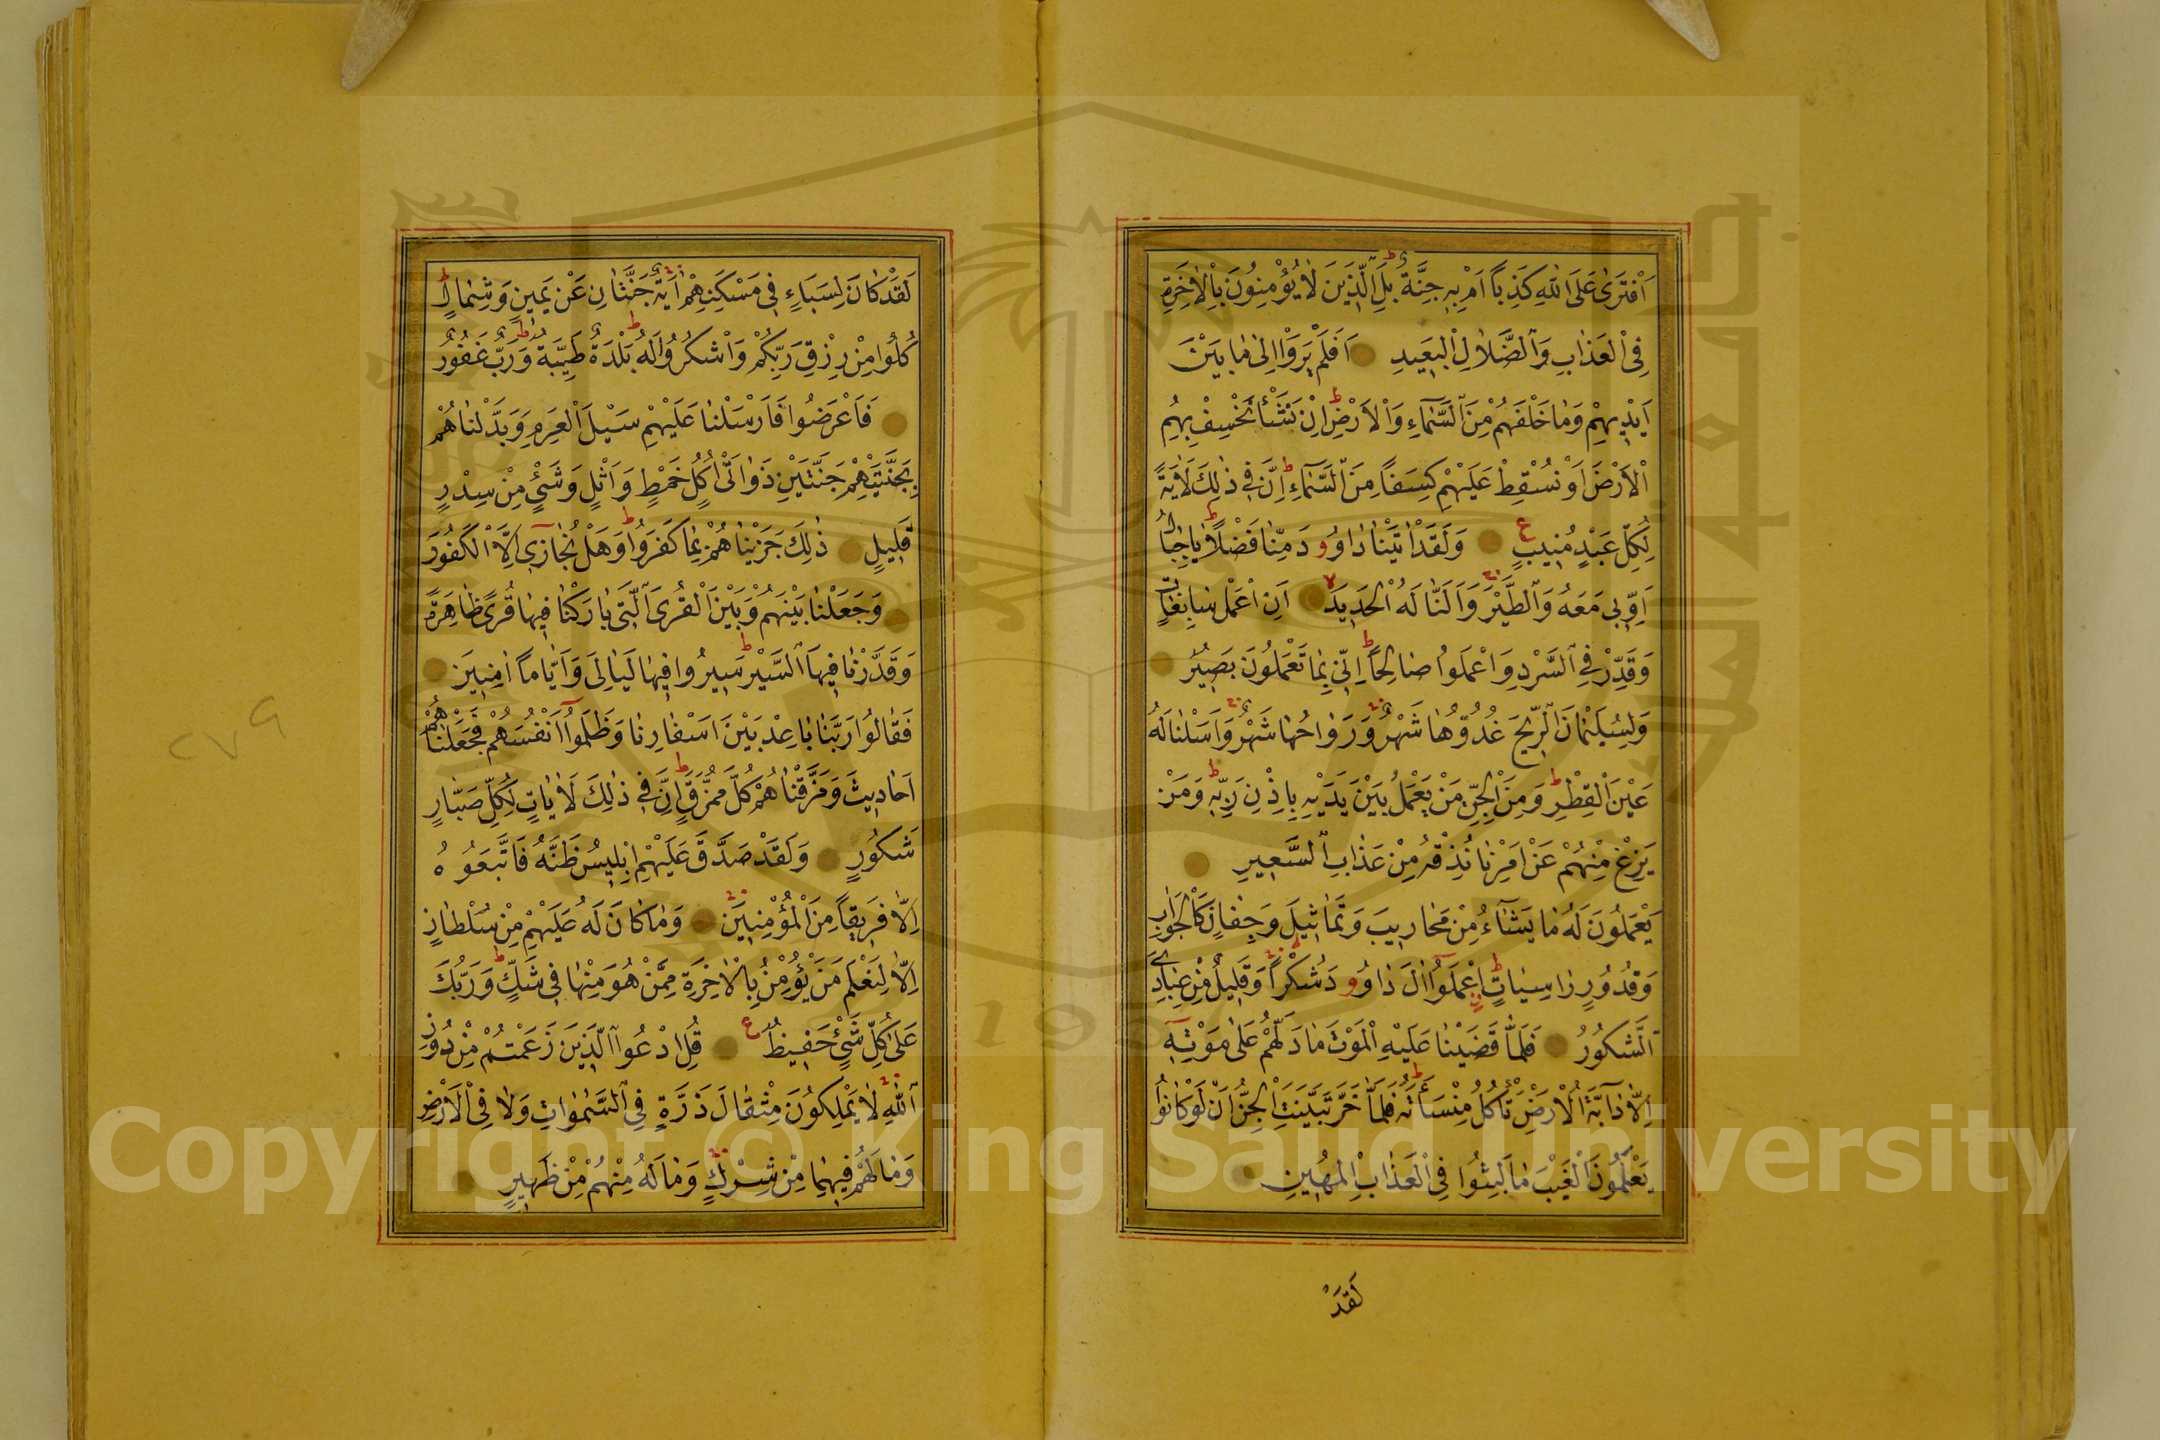 اَفْتَرٰى عَلَى اللّٰهِ كَذِبًا اَمْ بِهٖ جِنَّةٌ بَلِ الَّذٖينَ لَا يُؤْمِنُونَ بِالْاٰخِرَةِ
فِى الْعَذَابِ وَالضَّلَالِ الْبَعٖيدِ اَفَلَمْ يَرَوْا اِلٰى مَا بَيْنَ
اَيْدٖيهِمْ وَمَا خَلْفَهُمْ مِنَ السَّمَٓاءِ وَالْاَرْضِ اِنْ نَشَأْ نَخْسِفْ بِهِمُ
الْاَرْضَ اَوْ نُسْقِطْ عَلَيْهِمْ كِسَفًا مِنَ السَّمَٓاءِ اِنَّ فٖى ذٰلِكَ لَاٰيَةً
لِكُلِّ عَبْدٍ مُنٖيبٍ ع وَلَقَدْ اٰتَيْنَا دَاوُو دَ مِنَّا فَضْلًا يَا جِبَالُ
اَوِّبٖى مَعَهُ وَالطَّيْرَ وَاَلَنَّا لَهُ الْحَدٖيدَ اَنِ اعْمَلْ سَابِغَاتٍ
وَقَدِّرْ فِى السَّرْدِ وَاعْمَلُوا صَالِحًا اِنّٖى بِمَا تَعْمَلُونَ بَصٖيرٌ
وَلِسُلَيْمٰنَ الرّٖيحَ غُدُوُّهَا شَهْرٌ وَرَوَاحُهَا شَهْرٌ وَاَسَلْنَا لَهُ
عَيْنَ الْقِطْرِ وَمِنَ الْجِنِّ مَنْ يَعْمَلُ بَيْنَ يَدَيْهِ بِاِذْنِ رَبِّهٖ وَمَنْ
يَزِغْ مِنْهُمْ عَنْ اَمْرِنَا نُذِقْهُ مِنْ عَذَابِ السَّعٖيرِ
يَعْمَلُونَ لَهُ مَا يَشَٓاءُ مِنْ مَحَارٖيبَ وَتَمَاثٖيلَ وَجِفَانٍ كَالْجَوَابِ
وَقُدُورٍ رَاسِيَاتٍ اِعْمَلُٓوا اٰلَ دَاوُو دَ شُكْرًا وَقَلٖيلٌ مِنْ عِبَادِىَ
الشَّكُورُ فَلَمَّا قَضَيْنَا عَلَيْهِ الْمَوْتَ مَا دَلَّهُمْ عَلٰى مَوْتِهٖٓ
اِلَّا دَٓابَّةُ الْاَرْضِ تَأْكُلُ مِنْسَاَتَهُ فَلَمَّا خَرَّ تَبَيَّنَتِ الْجِنُّ اَنْ لَوْ كَانُوا
يَعْلَمُونَ الْغَيْبَ مَا لَبِثُوا فِى الْعَذَابِ الْمُهٖينِ
لَقَدْ
لَقَدْ كَانَ لِسَبَاءٍ فٖى مَسْكَنِهِمْ اٰيَةٌ جَنَّتَانِ عَنْ يَمٖينٍ وَشِمَالٍ
كُلُوا مِنْ رِزْقِ رَبِّكُمْ وَاشْكُرُوا لَهُ بَلْدَةٌ طَيِّبَةٌ وَرَبٌّ غَفُورٌ
فَاَعْرَضُوا فَاَرْسَلْنَا عَلَيْهِمْ سَيْلَ الْعَرِمِ وَبَدَّلْنَاهُمْ
بِجَنَّتَيْهِمْ جَنَّتَيْنِ ذَوَاتَىْ اُكُلٍ خَمْطٍ وَاَثْلٍ وَشَىْءٍ مِنْ سِدْرٍ
قَلٖيلٍ ذٰلِكَ جَزَيْنَاهُمْ بِمَا كَفَرُوا وَهَلْ نُجَازٖٓى اِلَّا الْكَفُورَ
وَجَعَلْنَا بَيْنَهُمْ وَبَيْنَ الْقُرَى الَّتٖى بَارَكْنَا فٖيهَا قُرًى ظَاهِرَةً
وَقَدَّرْنَا فٖيهَا السَّيْرَ سٖيرُوا فٖيهَا لَيَالِىَ وَاَيَّامًا اٰمِنٖينَ
فَقَالُوا رَبَّنَا بَاعِدْ بَيْنَ اَسْفَارِنَا وَظَلَمُٓوا اَنْفُسَهُمْ فَجَعَلْنَاهُمْ
اَحَادٖيثَ وَمَزَّقْنَاهُمْ كُلَّ مُمَزَّقٍ اِنَّ فٖى ذٰلِكَ لَاٰيَاتٍ لِكُلِّ صَبَّارٍ
شَكُورٍ وَلَقَدْ صَدَّقَ عَلَيْهِمْ اِبْلٖيسُ ظَنَّهُ فَاتَّبَعُوهُ
اِلَّا فَرٖيقًا مِنَ الْمُؤْمِنٖينَ وَمَا كَانَ لَهُ عَلَيْهِمْ مِنْ سُلْطَانٍ
اِلَّا لِنَعْلَمَ مَنْ يُؤْمِنُ بِالْاٰخِرَةِ مِمَّنْ هُوَ مِنْهَا فٖى شَكٍّ وَرَبُّكَ
عَلٰى كُلِّ شَىْءٍ حَفٖيظٌ ع قُلِ ادْعُوا الَّذٖينَ زَعَمْتُمْ مِنْ دُونِ
اللّٰهِ لَا يَمْلِكُونَ مِثْقَالَ ذَرَّةٍ فِى السَّمٰوَاتِ وَلَا فِى الْاَرْضِ
وَمَا لَهُمْ فٖيهِمَا مِنْ شِرْكٍ وَمَا لَهُ مِنْهُمْ مِنْ ظَهٖيرٍ
٢٧٩
Copyright © King Saud University